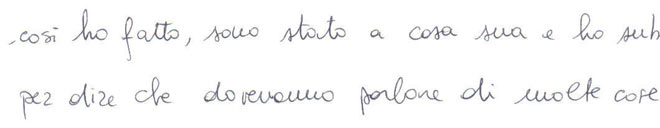 così ho fatto, sono stato a casa sua e ho sub
per dire che dovevamo parlare di molte cose